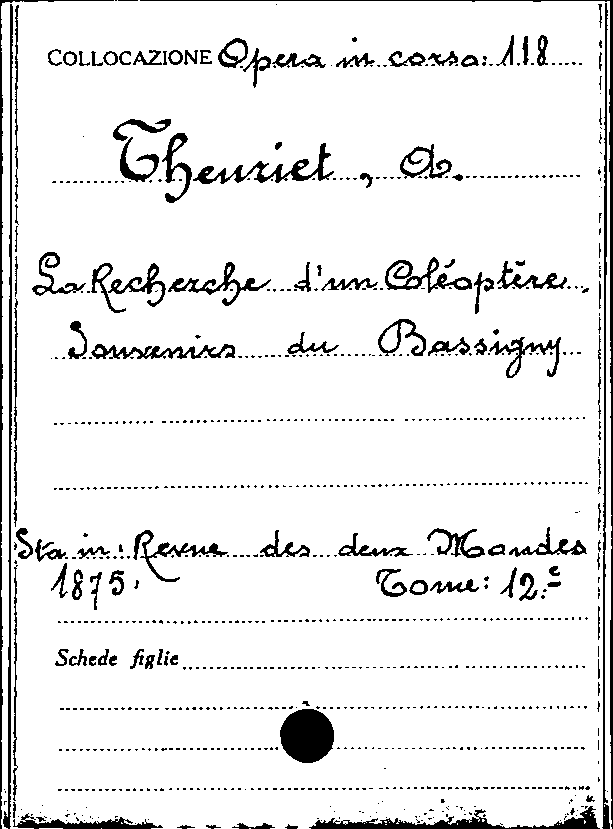 COLLOCAZIONE Opera in corso: 118
Theuriet, A.
La Recherche d'un Coléoptère.
Souvenirs du Bassigny
Sta in: Revue des deux Mondes
1875. Tome: 12.e
Schede figlie